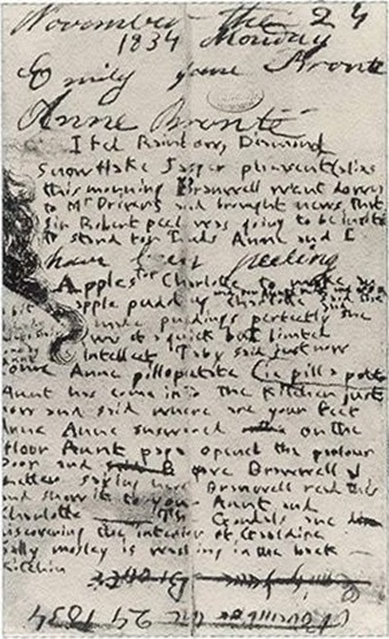 November the 24
1834 Monday
Emily Jane Brontë
Anne Brontë
I fed Rainbow, Diamond
Snowflake Jasper pheasent (alias
this morning Branwell went down
to Mr Drivers and brought news that
Sir Robert peel was going to be invited
to stand for Leeds Anne and I
have been peeling
Apples for Charlotte to make
apple pudding Charlotte said she
made pudings perfectly she
was of a quick but limted
intellect Taby said just now
come Anne pillopatate (ie pill a potato
Aunt has come into the Kitchen just
now and said where are your feet
Anne Anne answered on the
floor Aunt papa opened the parlour
Door and gave Branwell a
Letter saying here Branwell read this
and show it to your Aunt and
Charlotte The Gondals are
discovering the interior of Gaaldine
Sally mosley is washing in the back
Kitchin